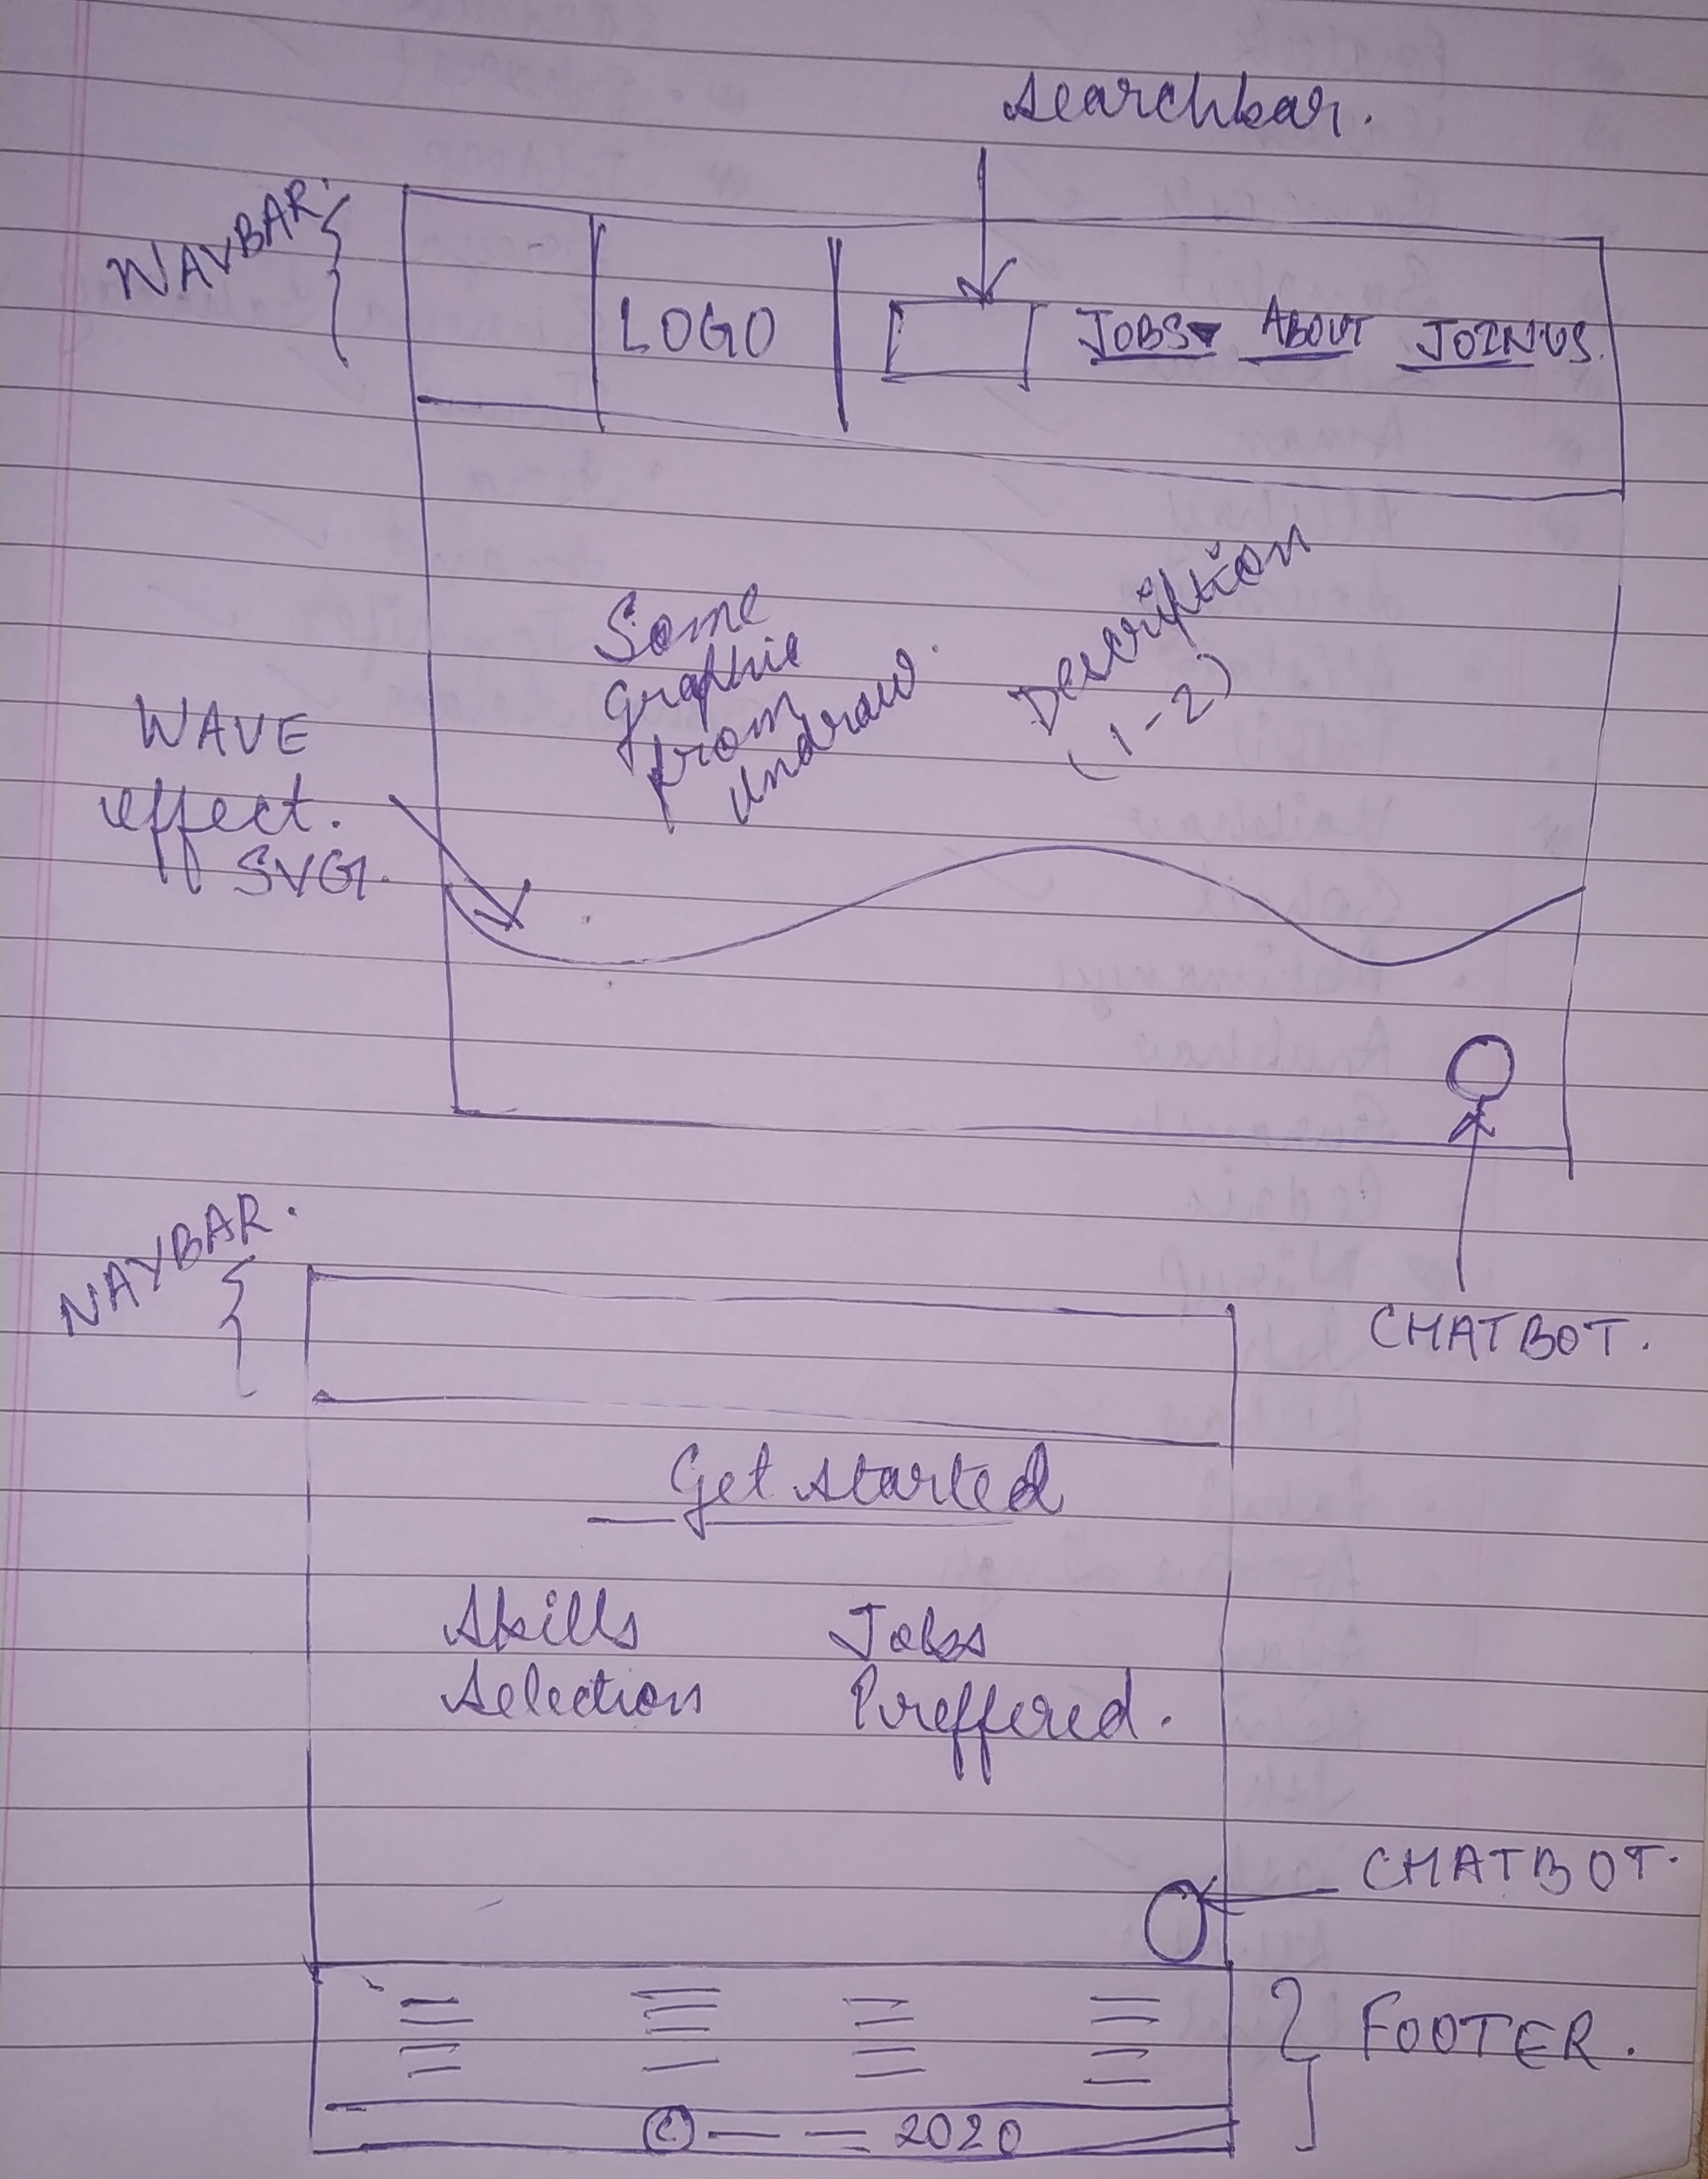 searchbar.
NAVBAR.
LOGO
JOBS ABOUT JOINUS.
Some
graphic
from
undraw.
Description
(1-2)
WAVE
effect.
SVG.
CHATBOT.
NAVBAR.
Get started
Skills
selection
Jobs
Preffered.
CHATBOT.
FOOTER.
© — — 2020